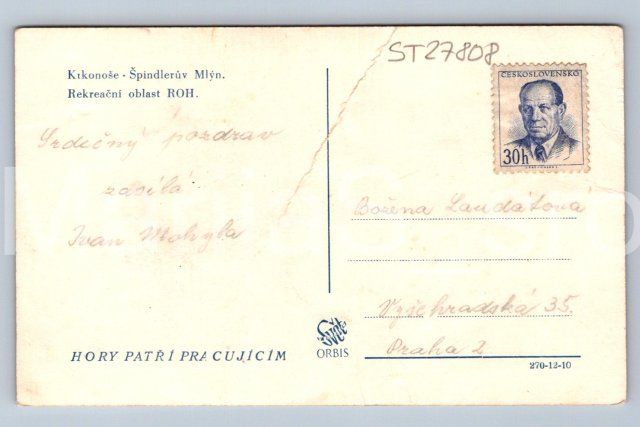 Krkonoše - Špindlerův Mlýn.
Rekreační oblast ROH.
ST27808
ČESKOSLOVENSKO
30h
Srdečný pozdrav
zasílá
Ivan Mohyla
Božena Laudátová
Vyšehradská 35.
Praha 2
Svět
ORBIS
HORY PATŘÍ PRACUJÍCÍM
270-12-10